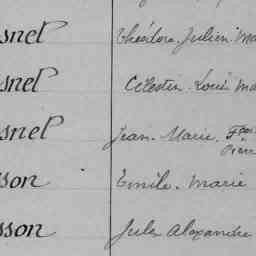 snel Théodore Julien Ma
snel Célestin Louis Ma
snel Jean Marie Fçois
Pierr
sson Emile Marie
sson Jules Alexandre